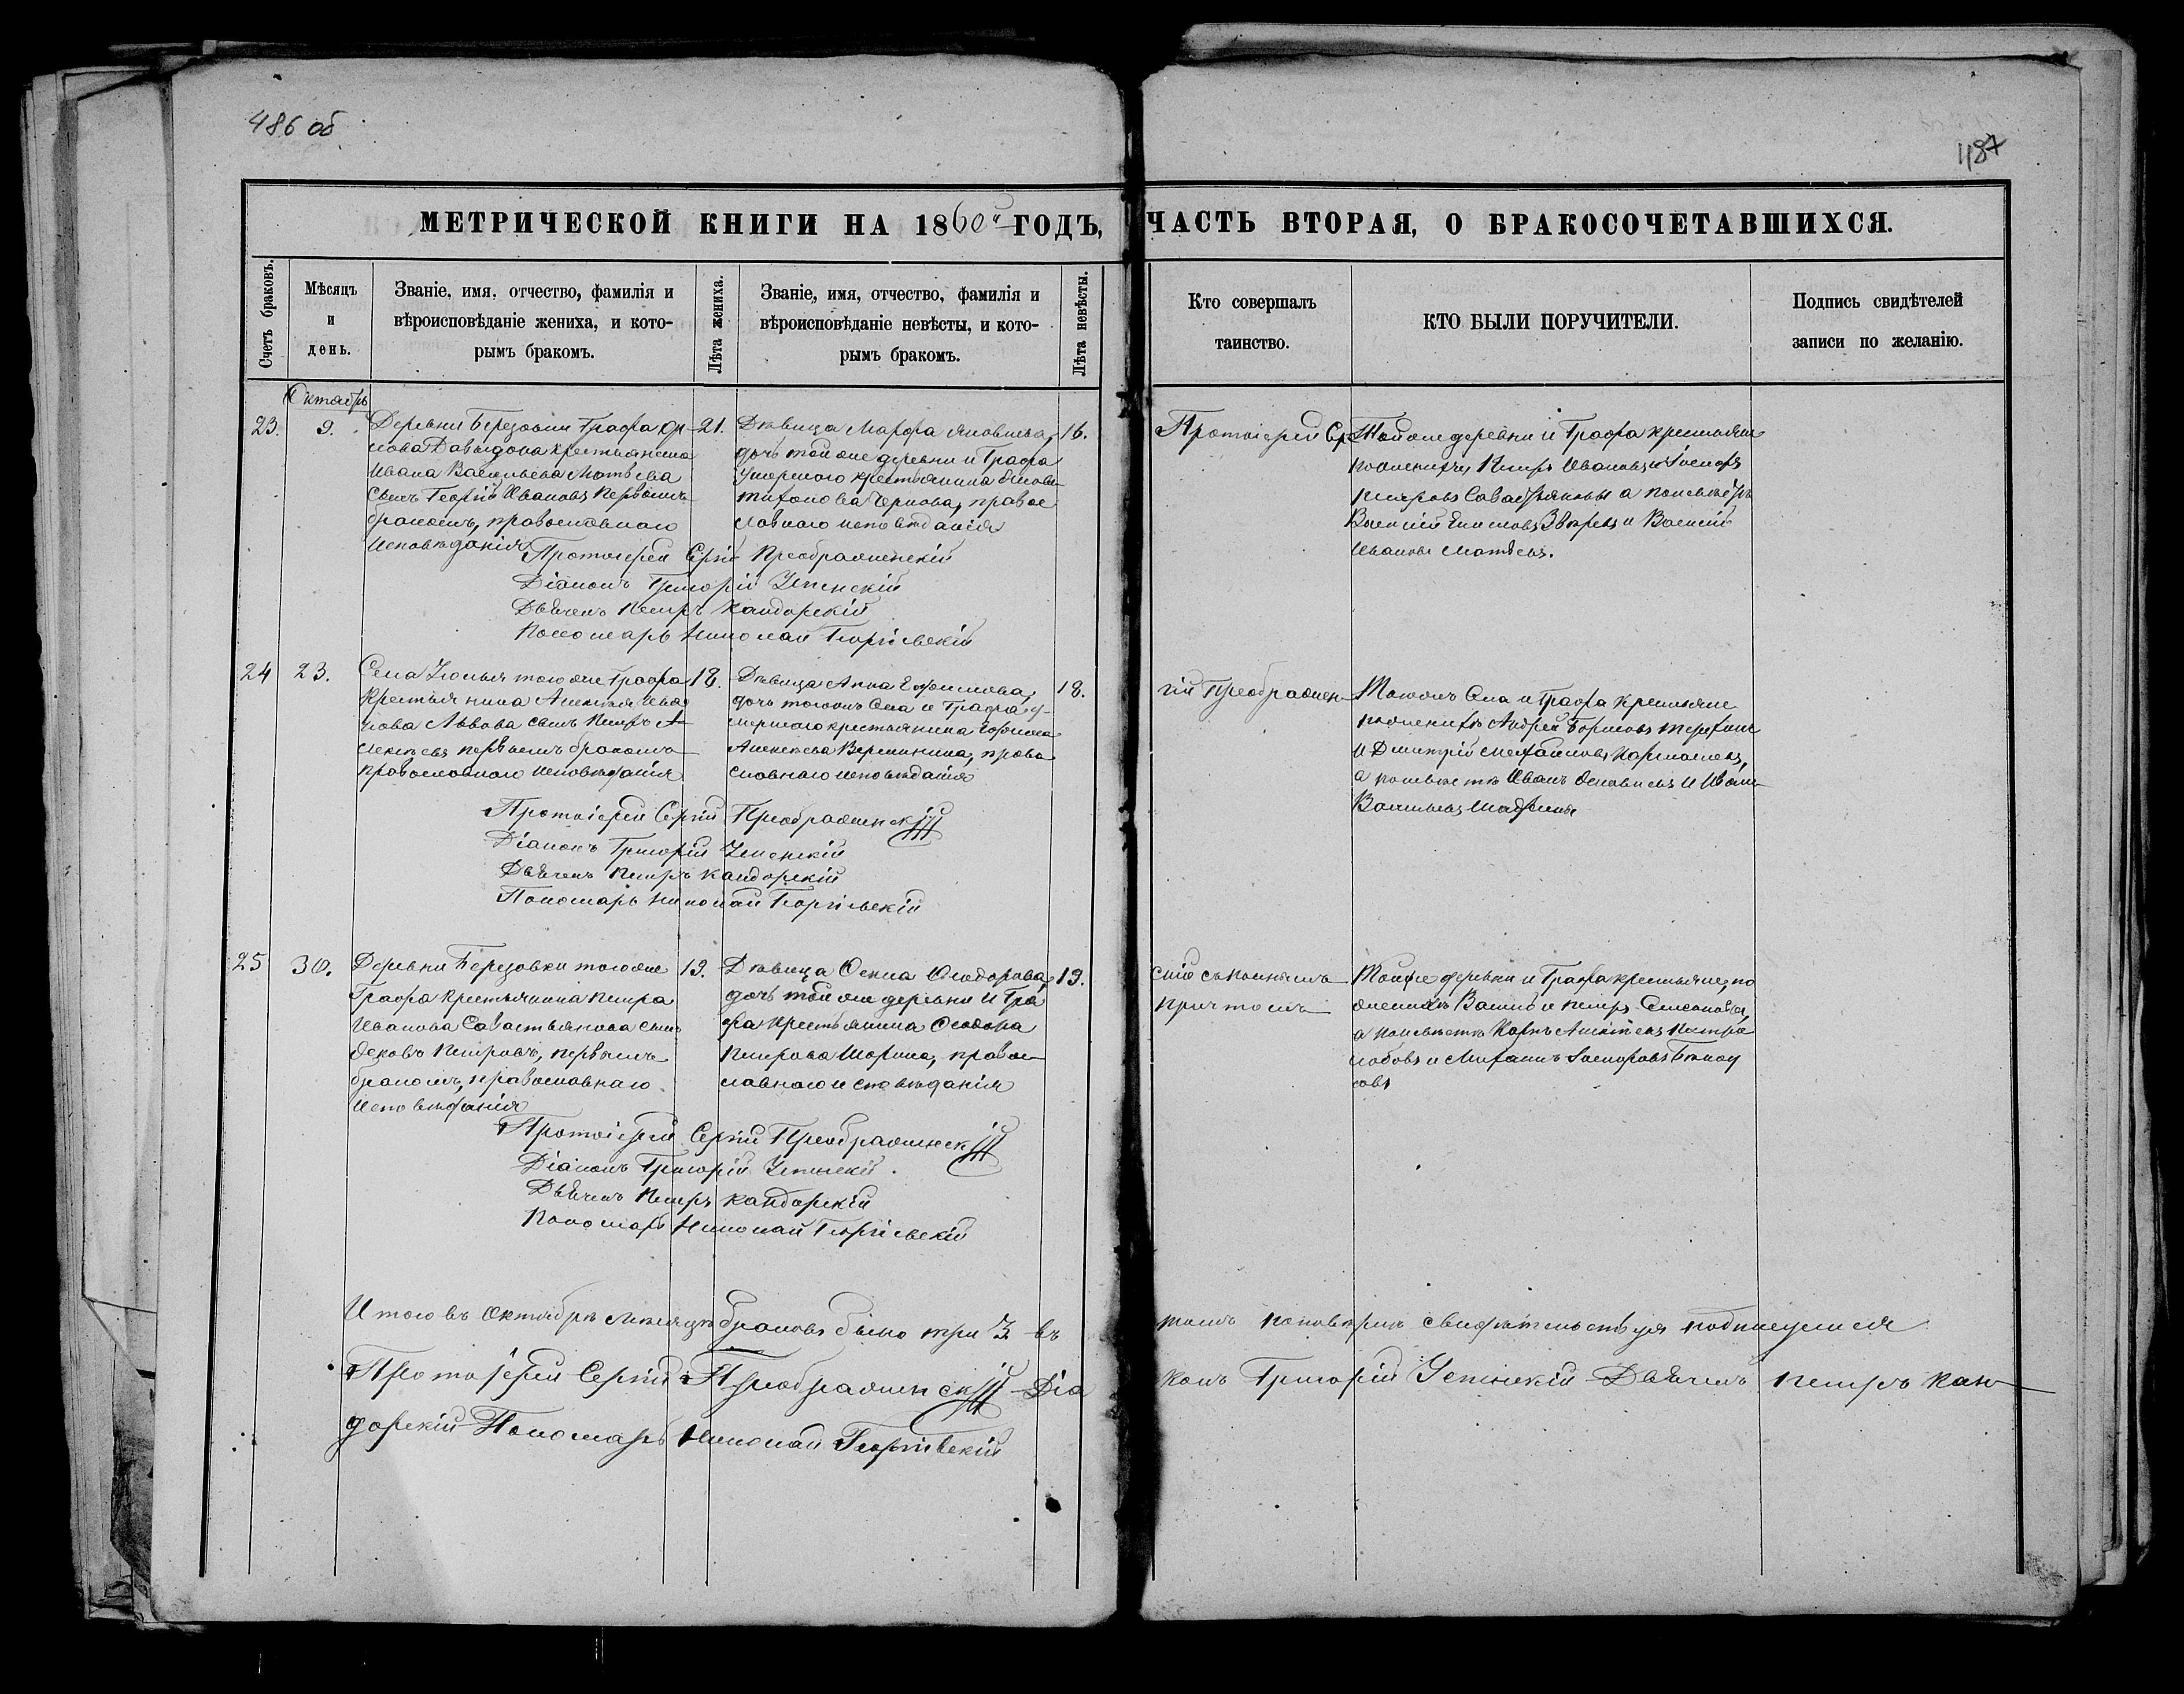 486 об
487
МЕТРИЧЕСКОЙ КНИГИ НА 1860й ГОДЪ, ЧАСТЬ ВТОРАЯ, О БРАКОСОЧЕТАВШИХСЯ.
Счетъ браковъ.
Мѣсяцъ
и
день.
Званіе, имя, отчество, фамилія и
вѣроисповѣданіе жениха, и кото-
рымъ бракомъ.
Лѣта жениха.
Званіе, имя, отчество, фамилія и
вѣроисповѣданіе невѣсты, и кото-
рымъ бракомъ.
Лѣта невѣсты.
Кто совершалъ
таинство.
КТО БЫЛИ ПОРУЧИТЕЛИ.
Подпись свидѣтелей
записи по желанію.
Октябрь
23.
9.
Деревни Березовки Графа Ор-
лова Давыдова крестьянина
Ивана Васильева Матвѣева
сынъ Георгій Ивановъ первымъ
бракомъ, православнаго
исповѣданія
21.
Дѣвица Марфа Яковлева,
дочь той же деревни и Графа
умершаго крестьянина Якова
Тихонова Чернова, правос
лавнаго исповѣданія
16.
Протоіерей Сер
Той же деревни и Графа крестьяне
по женихѣ Петръ Ивановъ и
Петровъ а по невѣстѣ
Василій и Василій
Ивановъ Матвѣевъ.
Протоіерей Сергій Преображенскій
Діаконъ Григорій Успенскій
Дьячекъ Петръ Кандорскій
Пономарь Николай Георгіевскій
24
23.
Села того же Графа
крестьянина Алексѣя Ива
нова Львова сынъ Петръ А-
лексѣевъ первымъ бракомъ
православнаго исповѣданія
18.
Дѣвица Анна Ефимова,
дочь тогожъ Села и Графа у-
мершаго крестьянина Ефима
Алексѣева, право
славнаго исповѣданія
18.
гій Преображен-
Тогожъ Села и Графа крестьяне
по женихѣ Андрей Борисовъ
и Дмитрій Михайловъ
а по невѣстѣ Иванъ и Иванъ
Васильевъ
Протоіерей Сергій Преображенскій
Діаконъ Григорій Успенскій
Дьячекъ Петръ Кандорскій
Пономарь Николай Георгіевскій
25
30.
Деревни Березовки того же
Графа крестьянина Петра
Иванова Савастьянова сынъ
Яковъ Петровъ, первымъ
бракомъ, православнаго
исповѣданія
19.
Дѣвица Ѳекла Ѳеодорова,
дочь той же деревни и Гра
фа крестьянина Ѳеодора
Петрова Шорина, правос-
лавнаго исповѣданія
19.
скій съ
причтомъ
Той же деревни и Графа крестьяне, по
женихѣ и Петръ
а по невѣстѣ Карпъ
и
Протоіерей Сергій Преображенскій
Діаконъ Григорій Успенскій.
Дьячекъ Петръ Кандорскій
Пономарь Николай Георгіевскій
Итого въ Октябрѣ мѣсяцѣ браковъ было три 3 въ томъ и свидѣтельствуя подписуемся
Протоіерей Сергій Преображенскій Діа конъ Григорій Успенскій Дьячекъ Петръ Кан-
дорскій Пономарь Николай Георгіевскій